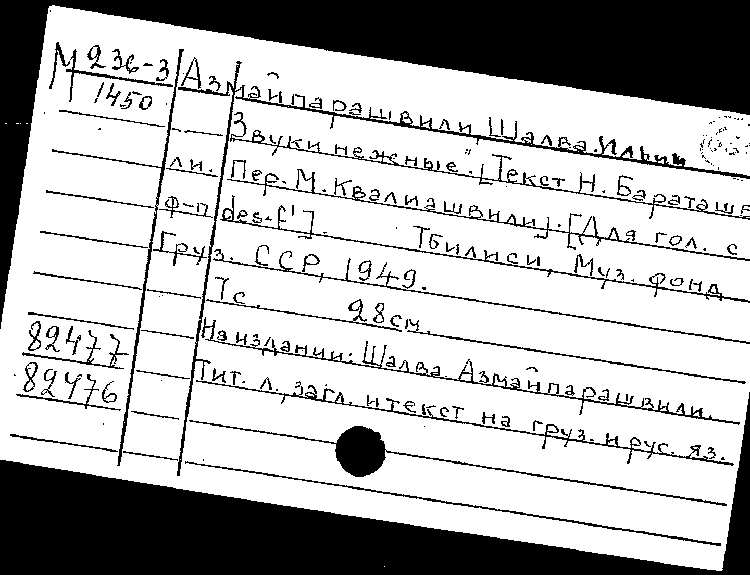 М 236-3
1450
Азмайпарашвили, Шалва Ильич
Звуки неженые". [Текст Н. Бараташв
ли. Пер. М. Квалиашвили]. [Для гол. с
ф-п des-f']. Тбилиси, Муз. фонд
Груз. ССР, 1949.
7с. 28см.
На издании: Шалва Азмайпарашвили.
Тит. л., загл. и текст на груз. и рус. яз.
82477
82476